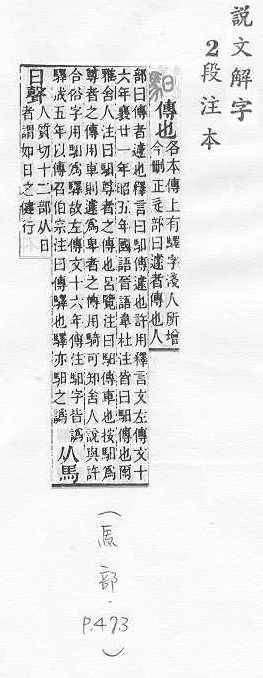 說文解字
2段注本
馹 傳也 各本傳上有驛字淺人所增
今刪正辵部曰遽者傳也人
部曰傳者遽也釋言曰馹傳遽也許用釋言文左傳文十
六年襄廿一年昭五年國語晉語韋杜注皆曰馹傳也爾
雅舍人注曰馹尊者之傳也呂覽注曰馹傳車也按馹爲
尊者之傳用車則遽爲卑者之傳用騎可知舍人說與許
合俗字用驛爲馹故左傳文十六年傳注馹字皆譌
驛成五年以傳召伯宗注曰傳驛也驛亦馹之譌 从馬
日聲 人質切十二部从日
者謂如日之健行
(馬部.P.473)